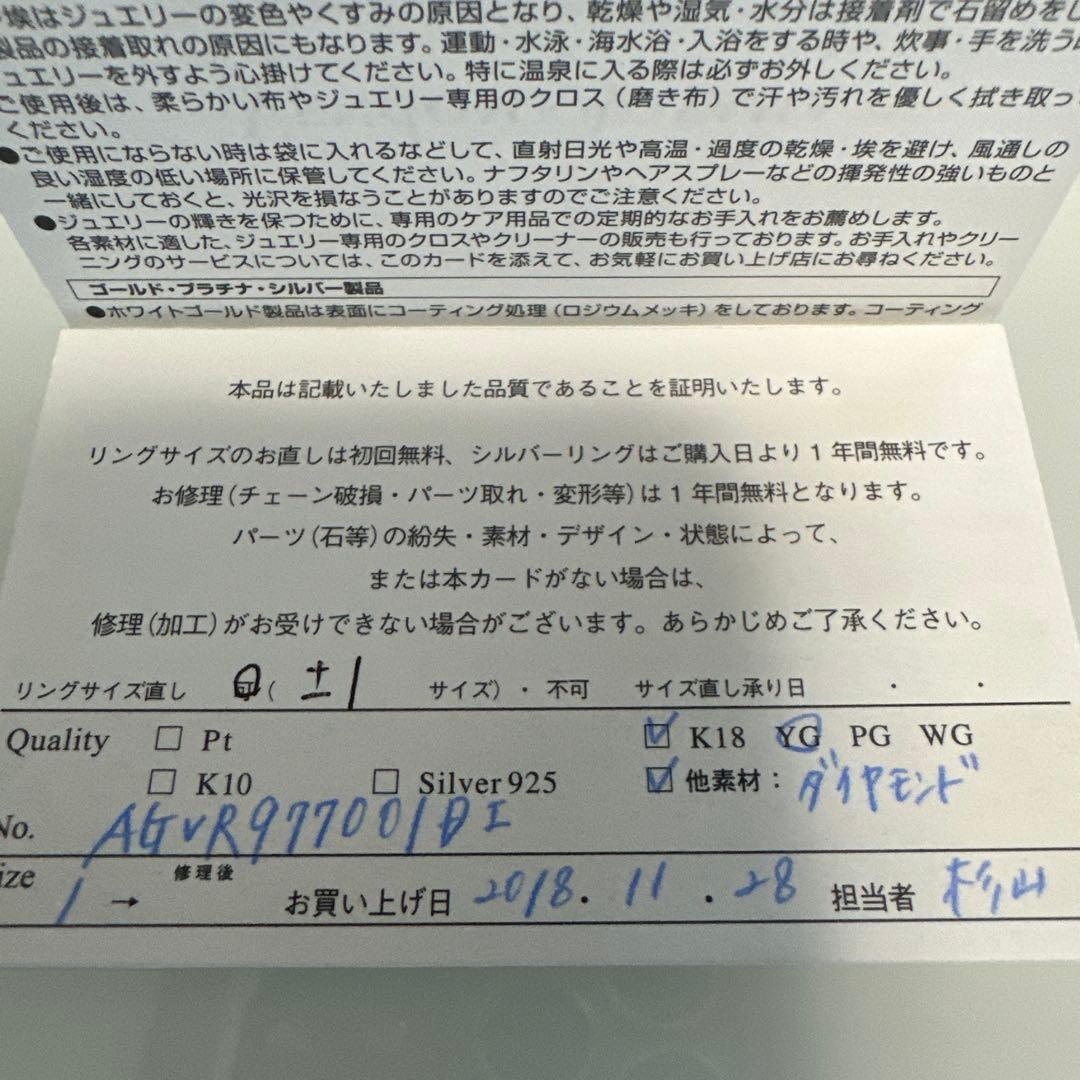 燥はジュエリーの変色やくすみの原因となり、乾燥や湿気・水分は接着剤で石留めをし
製品の接着取れの原因にもなります。運動・水泳・海水浴・入浴をする時や、炊事・手を洗う
ュエリーを外すよう心掛けてください。特に温泉に入る際は必ずお外しください。
ご使用後は、柔らかい布やジュエリー専用のクロス（磨き布）で汗や汚れを優しく拭き取っ
ください。
●ご使用にならない時は袋に入れるなどして、直射日光や高温・過度の乾燥・埃を避け、風通しの
良い湿度の低い場所に保管してください。ナフタリンやヘアスプレーなどの揮発性の強いものと
一緒にしておくと、光沢を損なうことがありますのでご注意ください。
●ジュエリーの輝きを保つために、専用のケア用品での定期的なお手入れをお薦めします。
各素材に適した、ジュエリー専用のクロスやクリーナーの販売も行っております。お手入れやクリー
ニングのサービスについては、このカードを添えて、お気軽にお買い上げ店にお尋ねください。
ゴールド・プラチナ・シルバー製品
●ホワイトゴールド製品は表面にコーティング処理（ロジウムメッキ）をしております。コーティング
本品は記載いたしました品質であることを証明いたします。
リングサイズのお直しは初回無料、シルバーリングはご購入日より1年間無料です。
お修理（チェーン破損・パーツ取れ・変形等）は1年間無料となります。
パーツ（石等）の紛失・素材・デザイン・状態によって、
または本カードがない場合は、
修理（加工）がお受けできない場合がございます。あらかじめご了承ください。
リングサイズ直し 可（ ±1 サイズ）・不可 サイズ直し承り日 ・ ・
Quality □ Pt ☑ K18 YG PG WG
□ K10 □ Silver925 ☑ 他素材：ダイヤモンド
No. AGVR977001DI
ize 1 → 修理後 お買い上げ日 2018.11.28 担当者 杉山